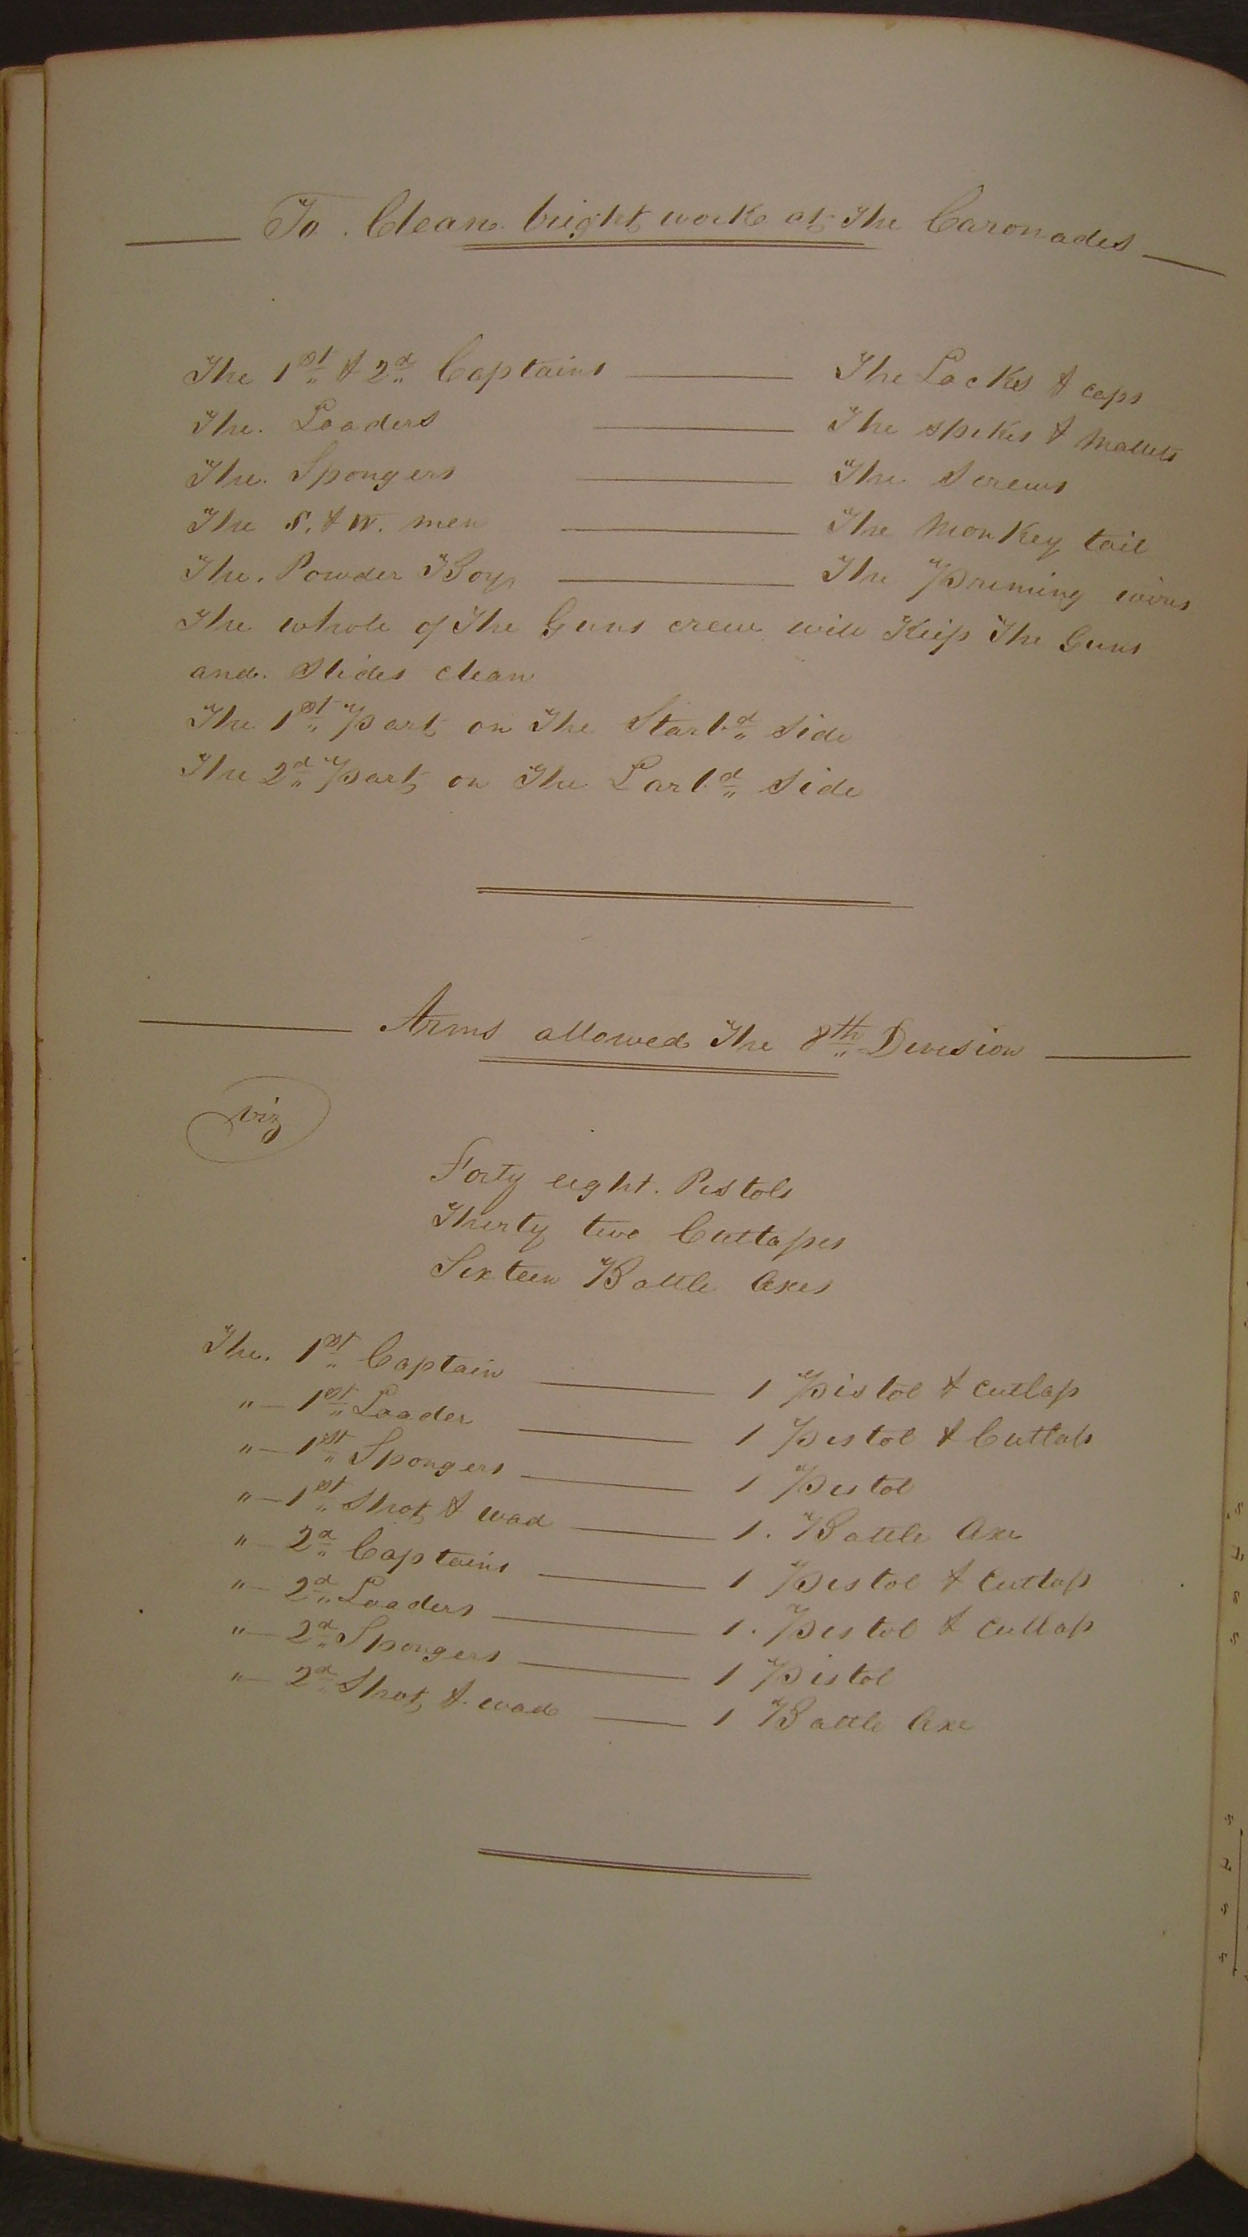 To Clean bright work at The Caronades
The 1st & 2d Captains The Lockes & caps
The Loaders The spikes & Mallets
The Spongers The Screws
The S. & W. men The Monkey tail
The Powder Boys The Priming wires
The whole of The Guns crew will Keep The Guns
and Slides clean
The 1st Part on The Starbd Side
The 2d Part on The Larbd Side
Arms allowed The 8th Division
viz
Forty eight Pistols
Thirty two Cutlasses
Sixteen Battle Axes
The 1st Captain 1 Pistol & Cutlass
" 1st Loader 1 Pistol & Cutlass
" 1st Spongers 1 Pistol
" 1st Shot & wad 1. Battle Axe
" 2d Captains 1 Pistol & Cutlass
" 2d Loaders 1. Pistol & Cutlass
" 2d Spongers 1 Pistol
" 2d Shot & wad 1 Battle Axe